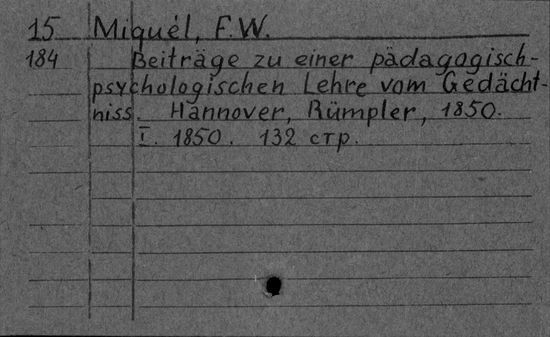 15 Miquél, F.W.
184 Beiträge zu einer pädagogisch-
psychologischen Lehre vom Gedächt-
niss. Hannover, Rümpler, 1850.
I. 1850. 132 стр.